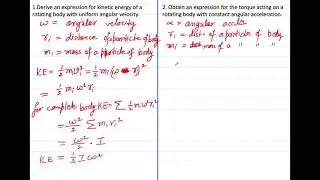 1.Derive an expression for kinetic energy of a
rotating body with uniform angular velocity.
ω = angular velocity
ri = distance of a particle of body
mi = mass of a particle of body
KE = 1/2 mi vi² = 1/2 mi (ω ri)²
= 1/2 mi ω² ri²
for complete body KE = Σ 1/2 mi ω² ri²
= ω²/2 Σ mi ri²
= ω²/2 · I
KE = 1/2 I ω²
2. Obtain an expression for the torque acting on a
rotating body with constant angular acceleration.
α = angular accln
ri = dist. of a particle of body
mi = mass of a " " "